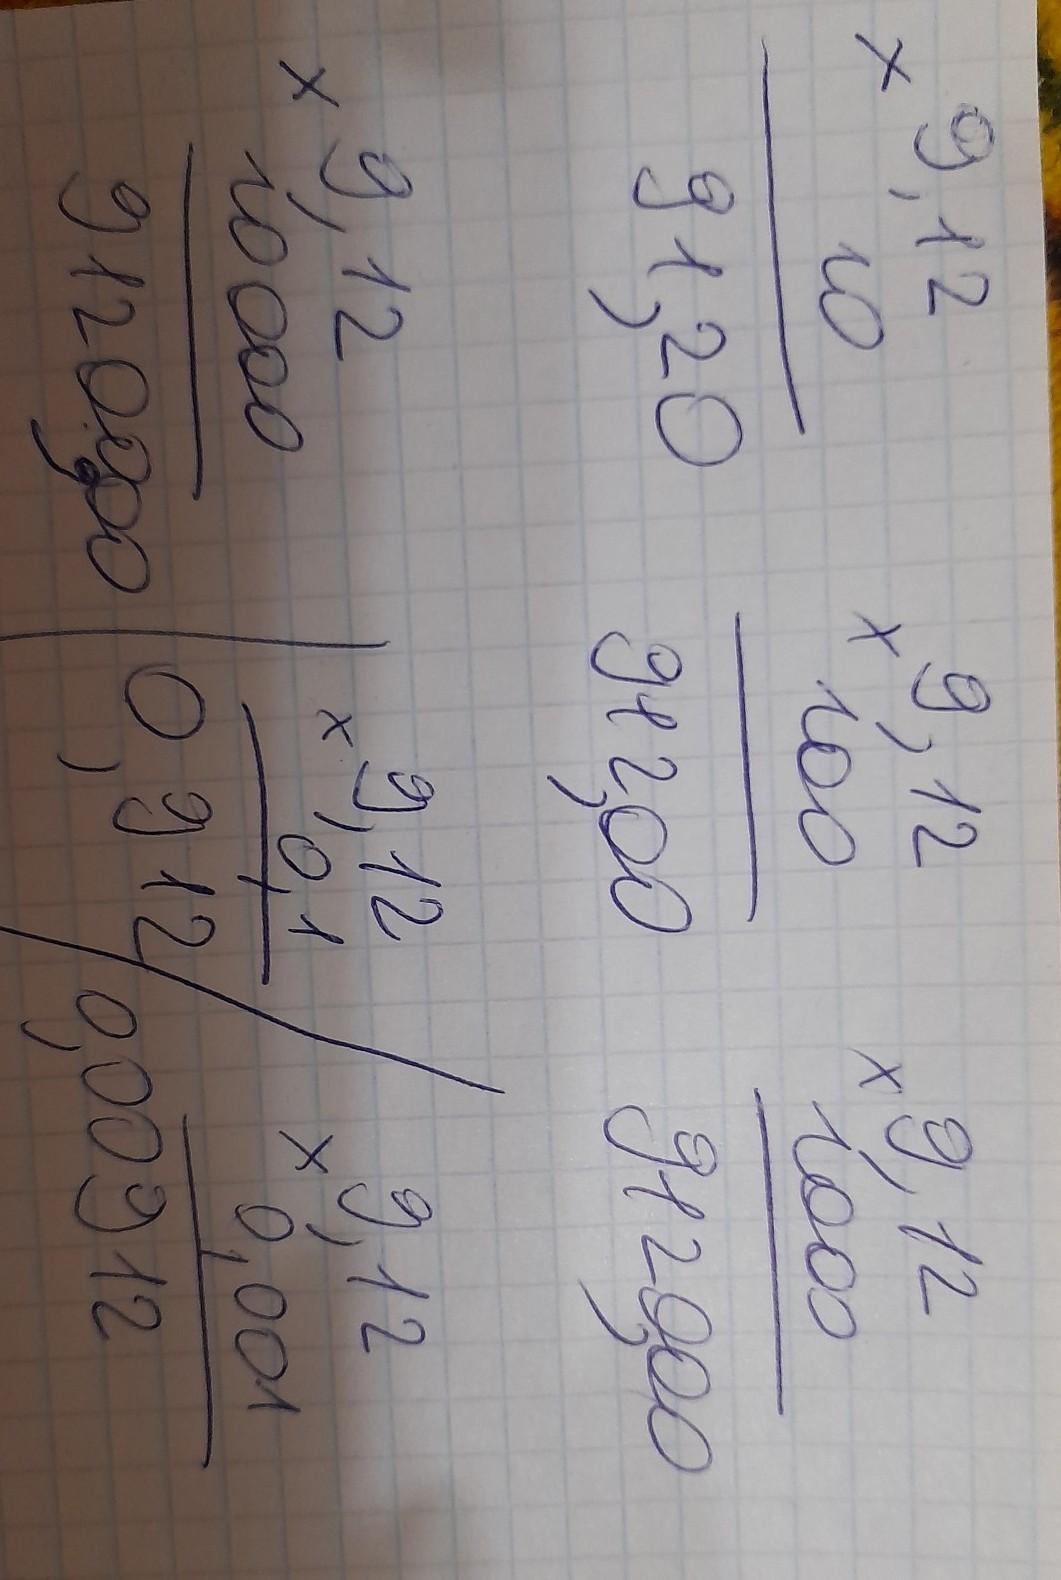 × 9,12
10
91,20
× 9,12
100
912,00
× 9,12
1000
9120,00
× 9,12
10000
91200,00
× 9,12
0,1
0,912
× 9,12
0,001
0,00912